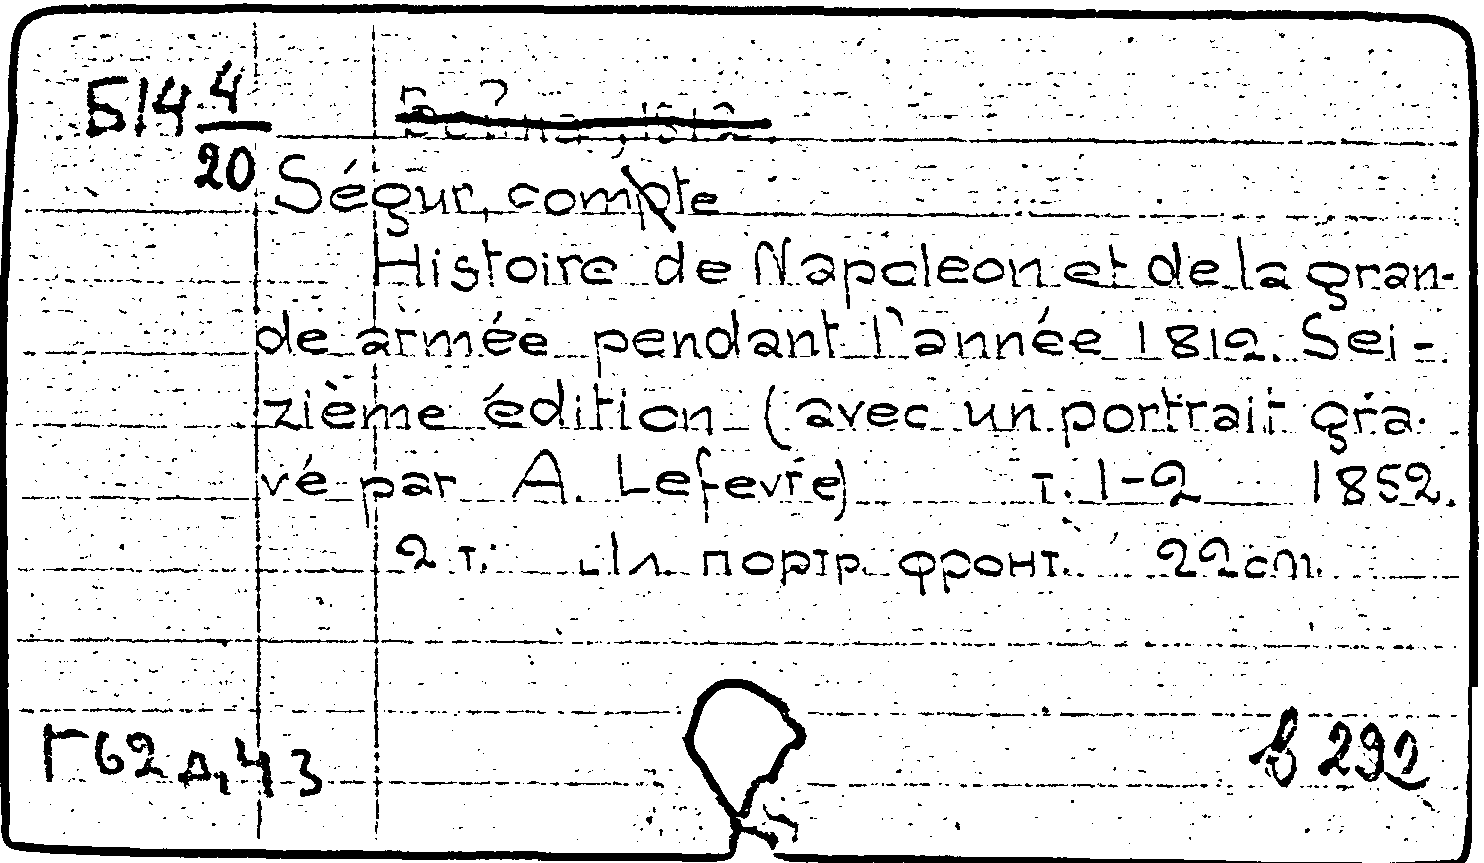 Б14 4/20
Ségur, compte
Histoire de Napoleon et de la gran-
de armée pendant l'année 1812. Sei-
zième édition (avec un portrait gra-
vé par A. Lefevre) т. 1-2 1852.
2 т. ил. портр. фронт. 22 cm.
Г62 д, 43
в 292